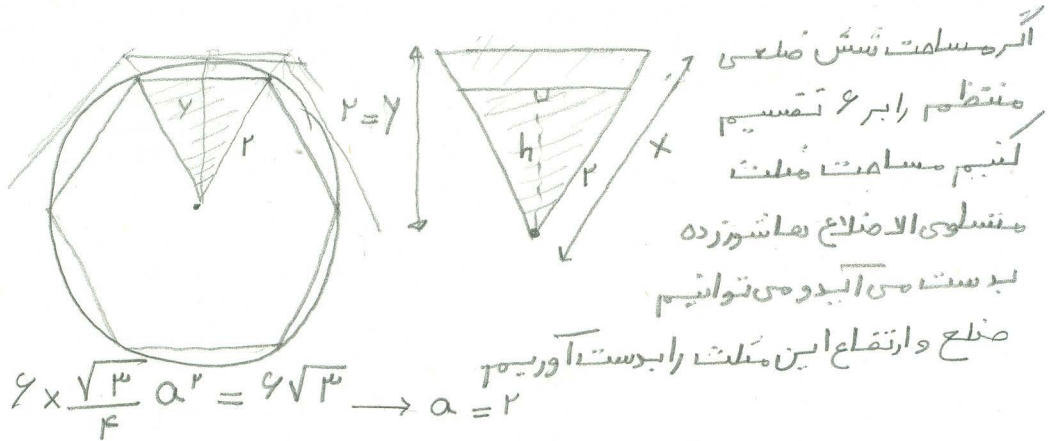 اگر مساحت شش ضلعی
منتظم را بر ۶ تقسیم
کنیم مساحت مثلث
متساوی الاضلاع هاشور زده
بدست می آید و می توانیم
ضلع و ارتفاع این مثلث را بدست آوریم
y
۲
۲ = y
h
۲
x
۶ × √۳/۴ a² = ۶√۳ → a = ۲